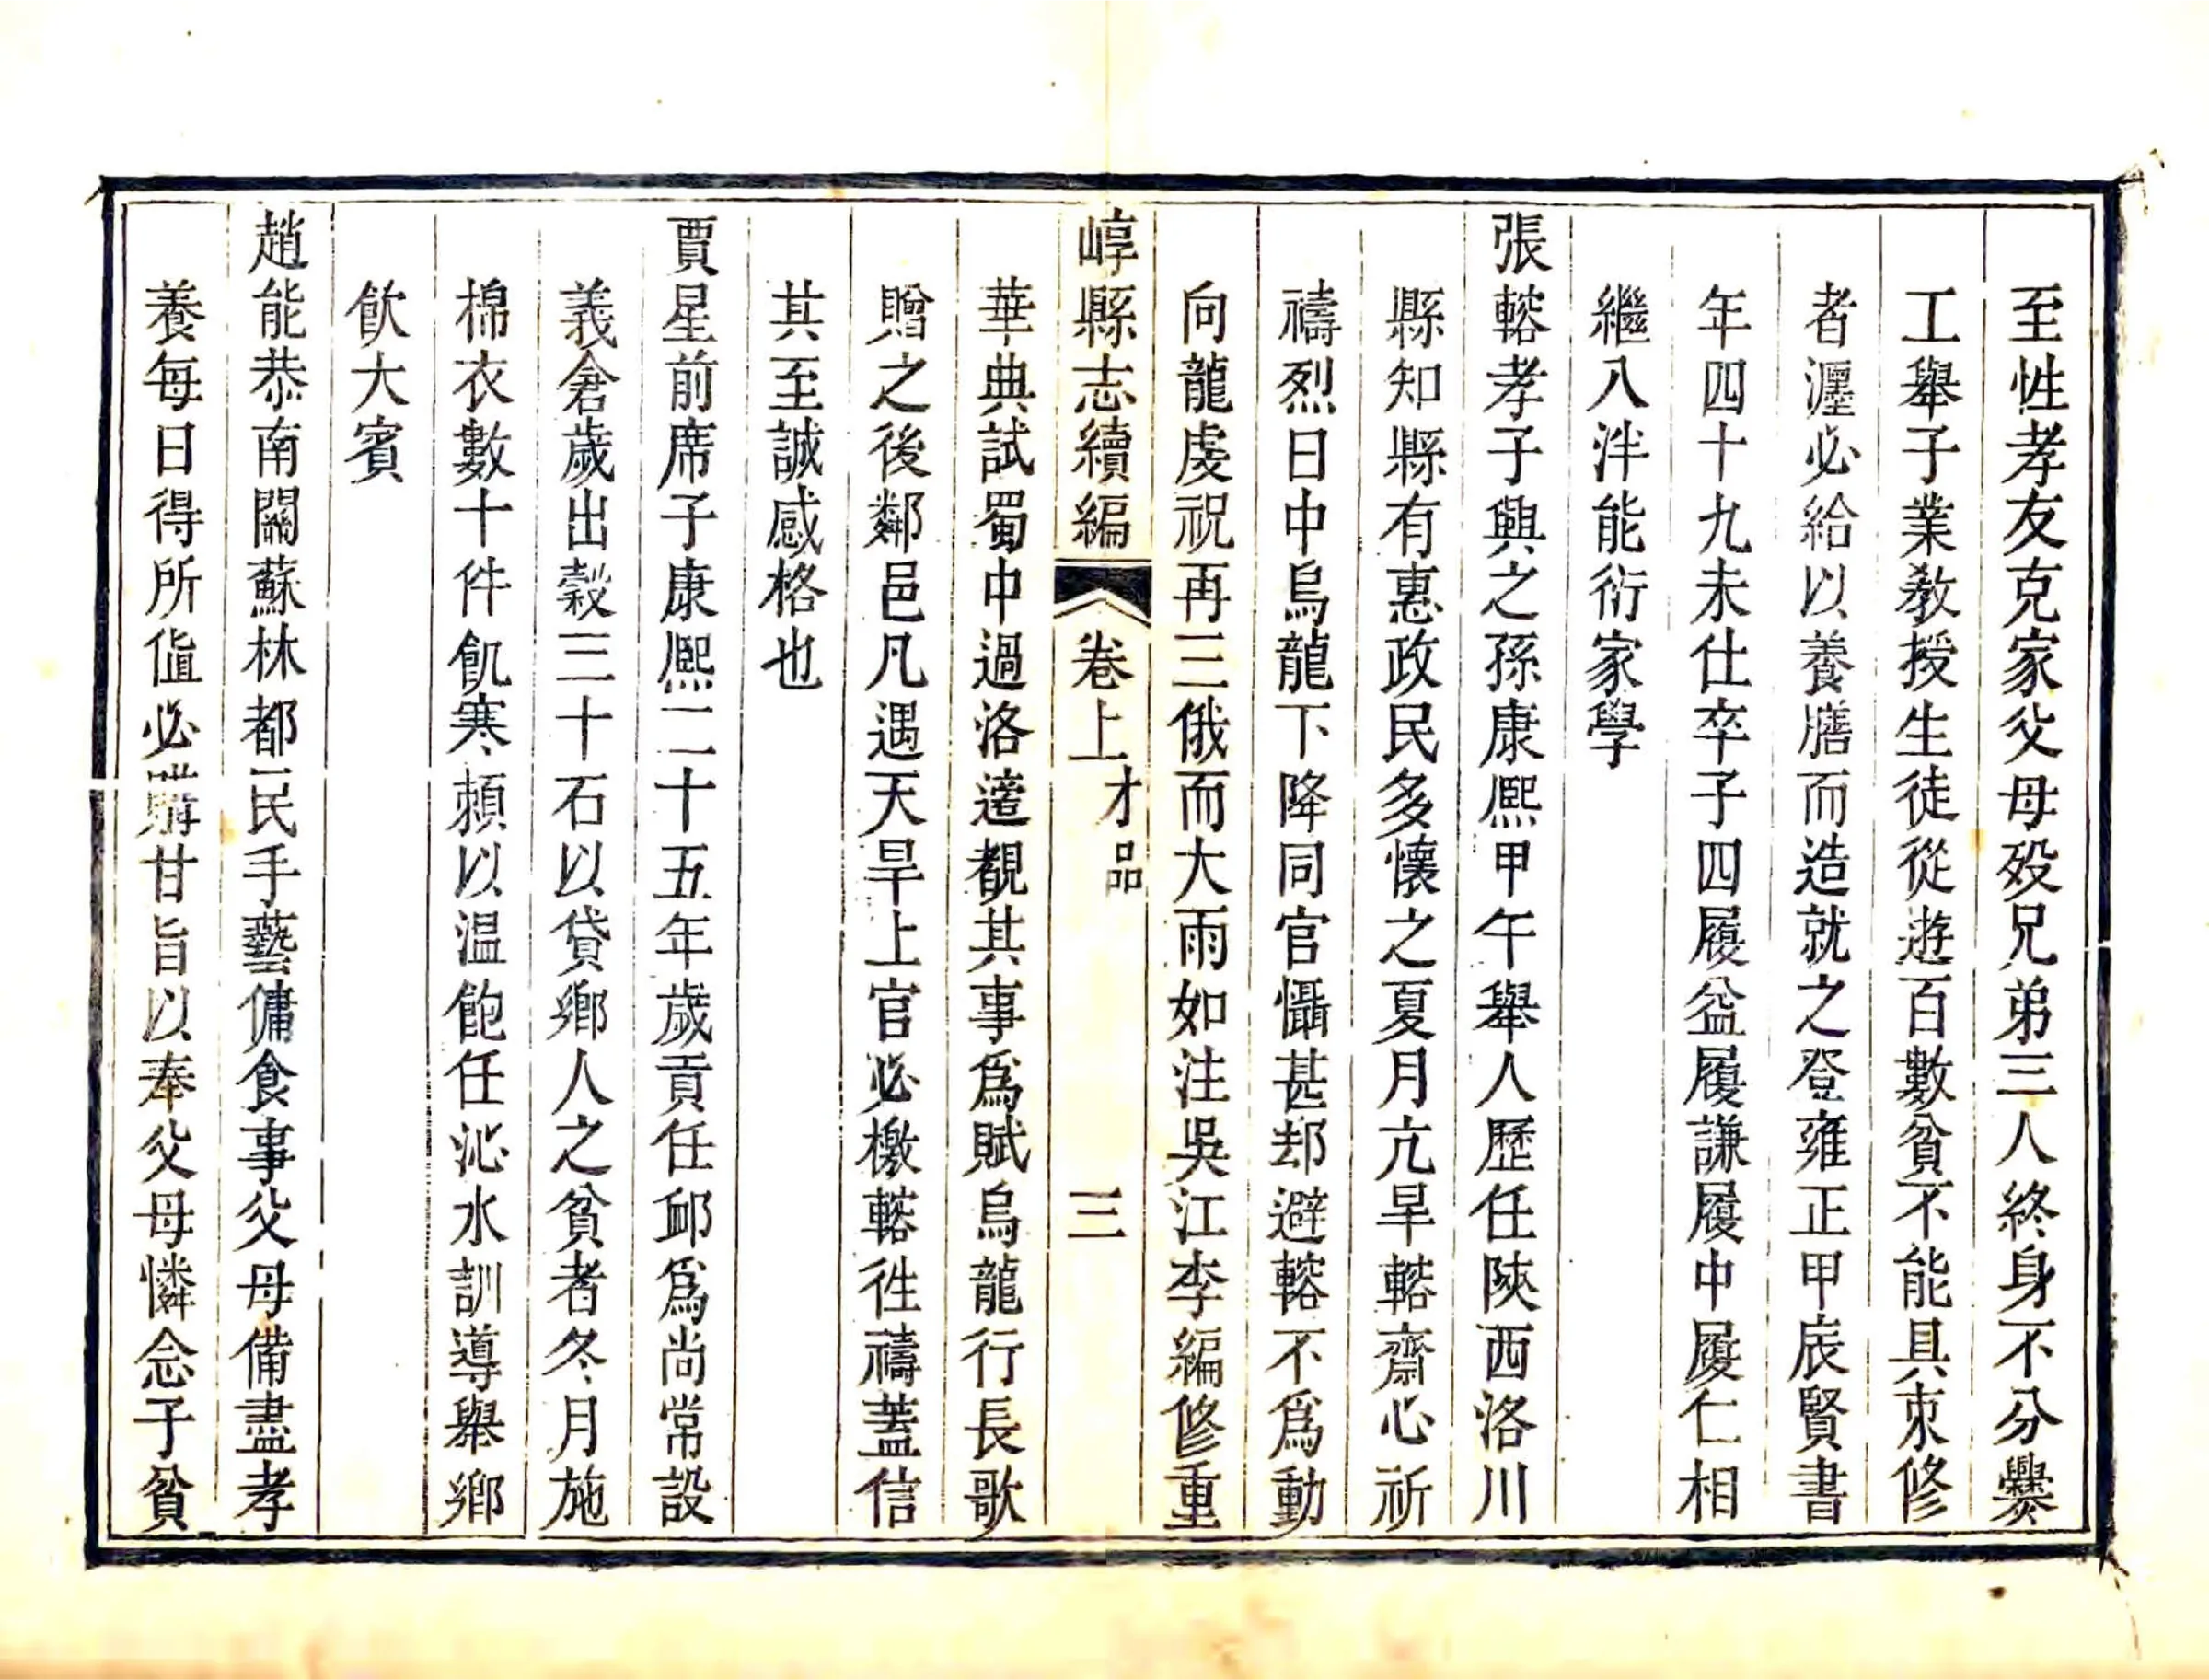 至性孝友克家父母殁兄弟三人終身不分爨
工舉子業教授生徒從遊百數貧不能具束修
者湮必給以養膳而造就之登雍正甲辰賢書
年四十九未仕卒子四履益履謙履中履仁相
繼入泮能衍家學
張輅孝子興之孫康熙甲午舉人歷任陝西洛川
縣知縣有惠政民多懷之夏月亢旱輅齋心祈
禱烈日中烏龍下降同官懾甚却避輅不為動
向龍虔祝再三俄而大雨如注吳江李編修重
崞縣志續編 卷上 才品 三
華典試蜀中過洛適覩其事為賦烏龍行長歌
贈之後鄰邑凡遇天旱上官必檄輅徃禱蓋信
其至誠感格也
賈星前席子康熙二十五年歲貢任邮為尚常設
義倉歲出穀三十石以貸鄉人之貧者冬月施
棉衣數十件飢寒頼以温飽任沁水訓導舉鄉
飲大賓
趙能恭南關蘇林都民手藝傭食事父母備盡孝
養每日得所值必購甘旨以奉父母憐念子貧